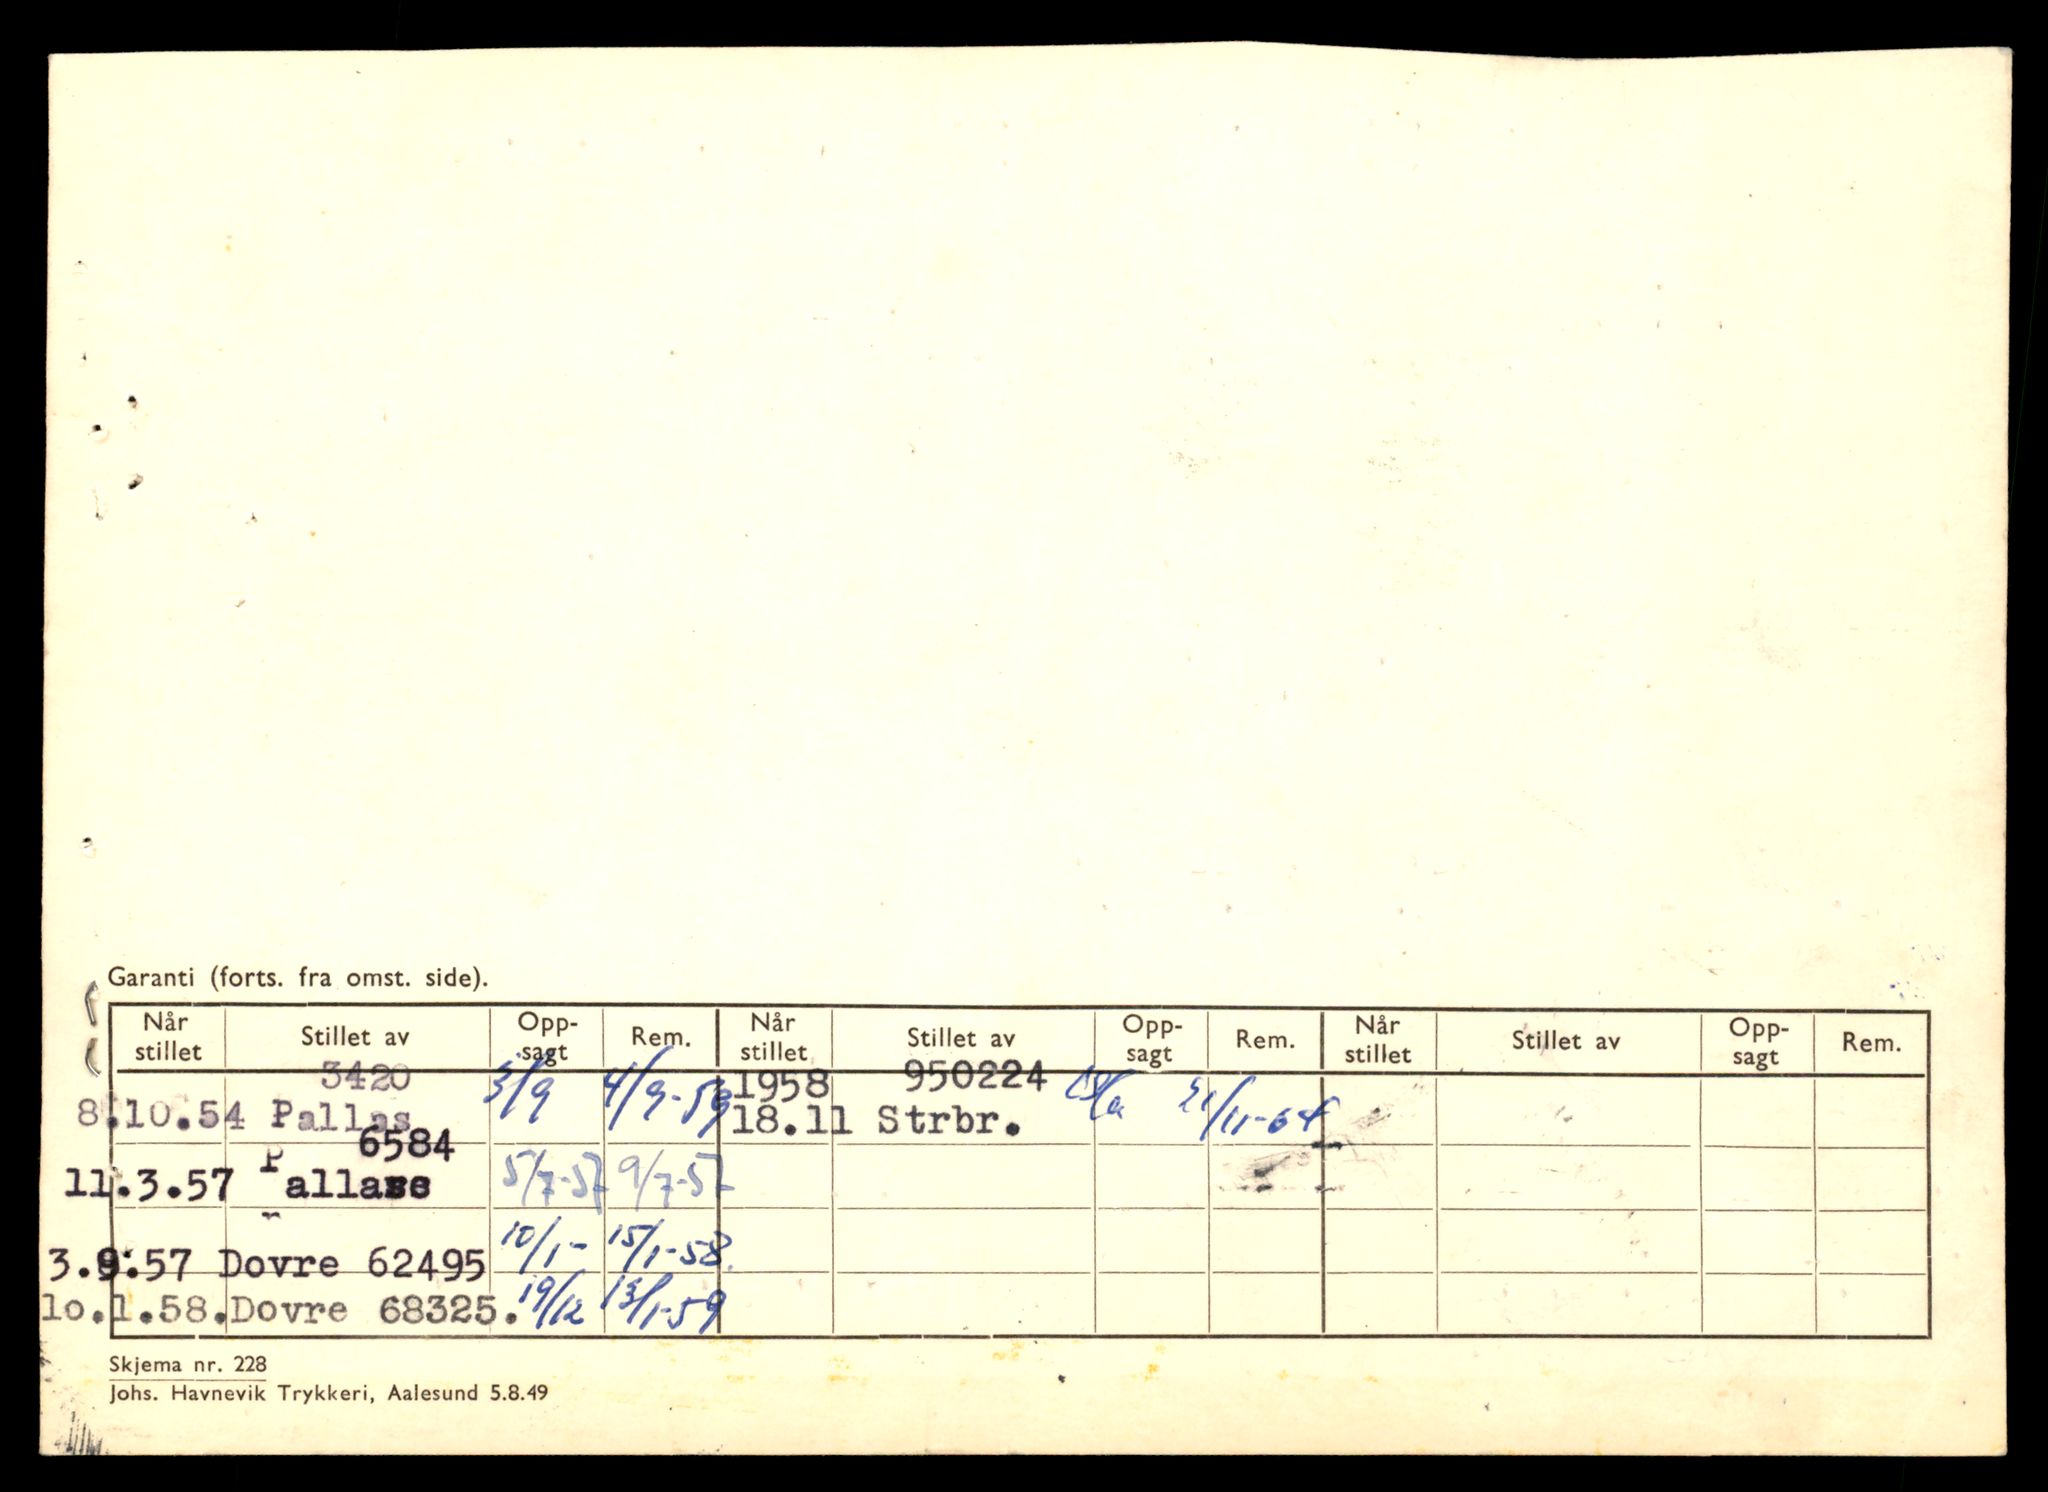 Garanti (forts. fra omst. side).
Når stillet Stillet av Opp-sagt Rem. Når stillet Stillet av Opp-sagt Rem. Når stillet Stillet av Opp-sagt Rem.
3420 1958 950224
8.10.54 Pallas 3/9 4/9-59 18.11 Strbr. 21/11-64
6584
11.3.57 Pallas 5/7-57 9/7-57
3.9.57 Dovre 62495 10/1- 15/1-58.
10.1.58. Dovre 68325. 19/12 13/1-59
Skjema nr. 228
Johs. Havnevik Trykkeri, Aalesund 5.8.49